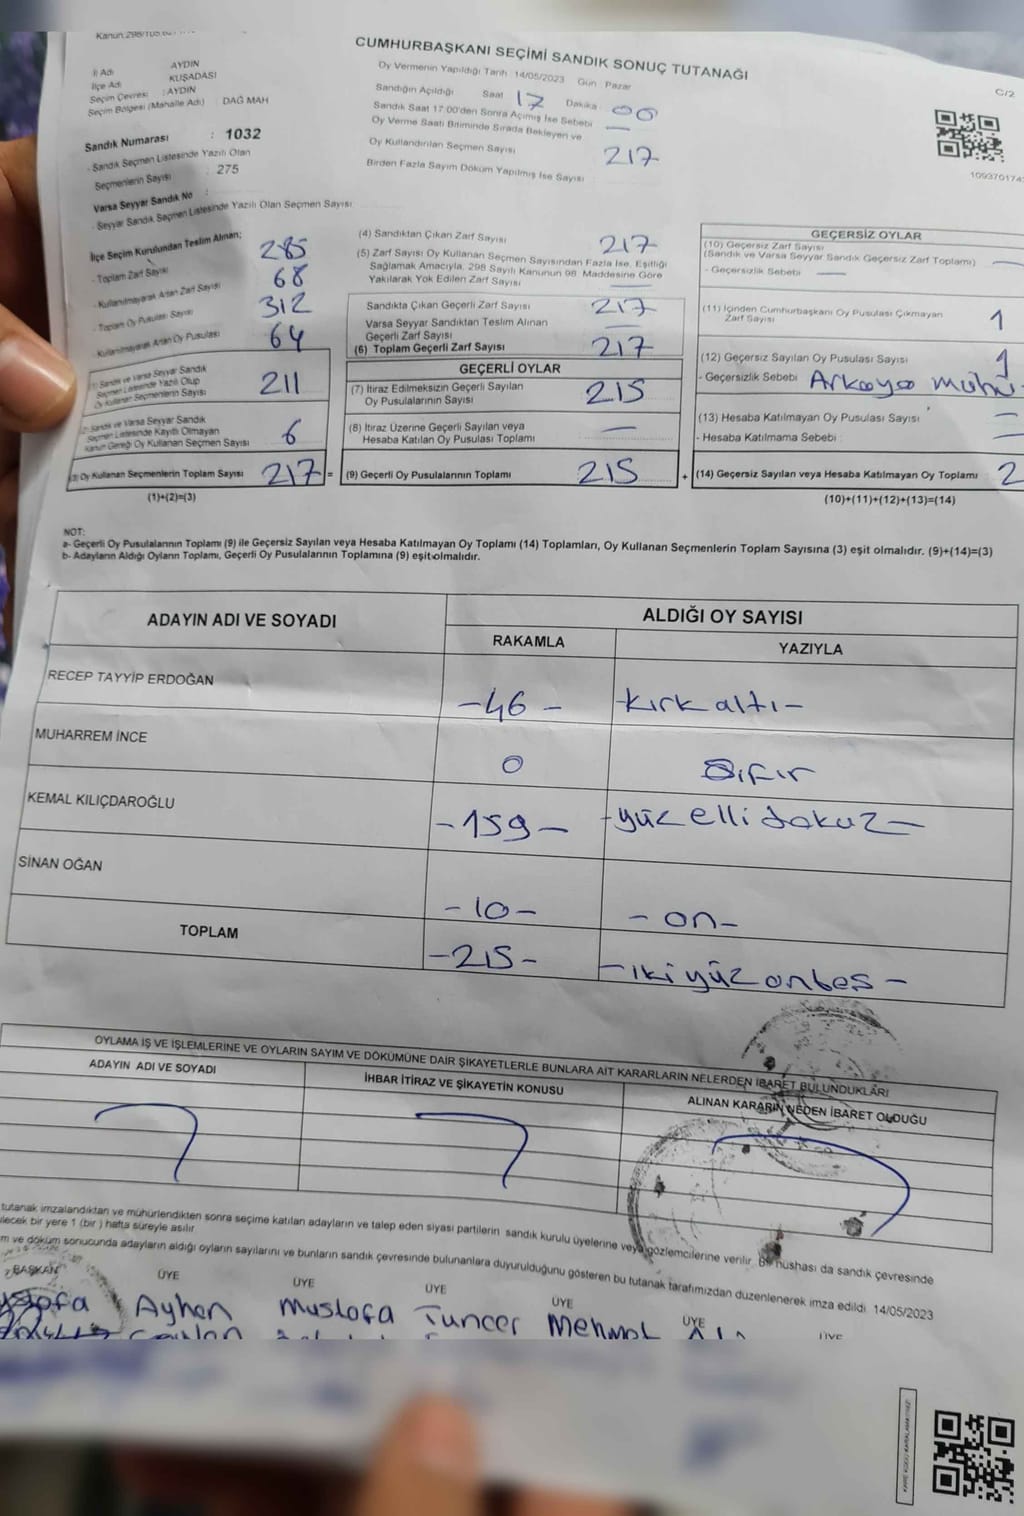 CUMHURBAŞKANI SEÇİMİ SANDIK SONUÇ TUTANAĞI
C/2
İl Adı AYDIN
İlçe Adı KUŞADASI
Seçim Çevresi : AYDIN
Seçim Bölgesi (Mahalle Adı) : DAĞ MAH
Oy Vermenin Yapıldığı Tarih 14/05/2023 Gün : Pazar
Sandığın Açıldığı Saat 17 Dakika : 00
Sandık Saat 17:00'den Sonra Açımış İse Sebebi —
Oy Verme Saati Bitiminde Sırada Bekleyen ve
Oy Kullandırılan Seçmen Sayısı 217
Birden Fazla Sayım Döküm Yapılmış İse Sayısı :
Sandık Numarası : 1032
- Sandık Seçmen Listesinde Yazılı Olan
Seçmenlerin Sayısı : 275
Varsa Seyyar Sandık No :
- Seyyar Sandık Seçmen Listesinde Yazılı Olan Seçmen Sayısı
İlçe Seçim Kurulundan Teslim Alınan;
- Toplam Zarf Sayısı 285
- Kullanılmayarak Artan Zarf Sayısı 68
- Toplam Oy Pusulası Sayısı 312
- Kullanılmayarak Artan Oy Pusulası 64
(1) Sandık ve Varsa Seyyar Sandık
Seçmen Listesinde Yazılı Olup
Oy Kullanan Seçmenlerin Sayısı 211
(2) Sandık ve Varsa Seyyar Sandık
Seçmen Listesinde Kayıtlı Olmayan
Kanun Gereği Oy Kullanan Seçmen Sayısı 6
(3) Oy Kullanan Seçmenlerin Toplam Sayısı 217 =
(1)+(2)=(3)
(4) Sandıktan Çıkan Zarf Sayısı 217
(5) Zarf Sayısı Oy Kullanan Seçmen Sayısından Fazla İse, Eşitliği
Sağlamak Amacıyla, 298 Sayılı Kanunun 98. Maddesine Göre
Yakılarak Yok Edilen Zarf Sayısı —
Sandıkta Çıkan Geçerli Zarf Sayısı 217
Varsa Seyyar Sandıktan Teslim Alınan
Geçerli Zarf Sayısı —
(6) Toplam Geçerli Zarf Sayısı 217
GEÇERLİ OYLAR
(7) İtiraz Edilmeksizin Geçerli Sayılan
Oy Pusulalarının Sayısı 215
(8) İtiraz Üzerine Geçerli Sayılan veya
Hesaba Katılan Oy Pusulası Toplamı —
(9) Geçerli Oy Pusulalarının Toplamı 215 +
GEÇERSİZ OYLAR
(10) Geçersiz Zarf Sayısı
(Sandık ve Varsa Seyyar Sandık Geçersiz Zarf Toplamı) —
- Geçersizlik Sebebi : —
(11) İçinden Cumhurbaşkanı Oy Pusulası Çıkmayan
Zarf Sayısı 1
(12) Geçersiz Sayılan Oy Pusulası Sayısı 1
- Geçersizlik Sebebi Arkaya mühü
(13) Hesaba Katılmayan Oy Pusulası Sayısı : —
- Hesaba Katılmama Sebebi : —
(14) Geçersiz Sayılan veya Hesaba Katılmayan Oy Toplamı 2
(10)+(11)+(12)+(13)=(14)
NOT:
a- Geçerli Oy Pusulalarının Toplamı (9) ile Geçersiz Sayılan veya Hesaba Katılmayan Oy Toplamı (14) Toplamları, Oy Kullanan Seçmenlerin Toplam Sayısına (3) eşit olmalıdır. (9)+(14)=(3)
b- Adayların Aldığı Oyların Toplamı, Geçerli Oy Pusulalarının Toplamına (9) eşit olmalıdır.
ADAYIN ADI VE SOYADI ALDIĞI OY SAYISI
RAKAMLA YAZIYLA
RECEP TAYYİP ERDOĞAN -46- -kırk altı-
MUHARREM İNCE 0 Sıfır
KEMAL KILIÇDAROĞLU -159- -yüz elli dokuz-
SİNAN OĞAN -10- -on-
TOPLAM -215- -ikiyüz onbeş-
OYLAMA İŞ VE İŞLEMLERİNE VE OYLARIN SAYIM VE DÖKÜMÜNE DAİR ŞİKAYETLERLE BUNLARA AİT KARARLARIN NELERDEN İBARET BULUNDUKLARI
ADAYIN ADI VE SOYADI İHBAR İTİRAZ VE ŞİKAYETİN KONUSU ALINAN KARARIN NEDEN İBARET OLDUĞU
tutanak imzalandıktan ve mühürlendikten sonra seçime katılan adayların ve talep eden siyasi partilerin sandık kurulu üyelerine veya gözlemcilerine verilir. Bir nüshası da sandık çevresinde
bir yere 1 (bir) hafta süreyle asılır.
ve döküm sonucunda adayların aldığı oyların sayılarını ve bunların sandık çevresinde bulunanlara duyurulduğunu gösteren bu tutanak tarafımızdan düzenlenerek imza edildi. 14/05/2023
BAŞKAN ÜYE ÜYE ÜYE ÜYE ÜYE ÜYE
Ayhan Mustafa Tuncer Mehmet